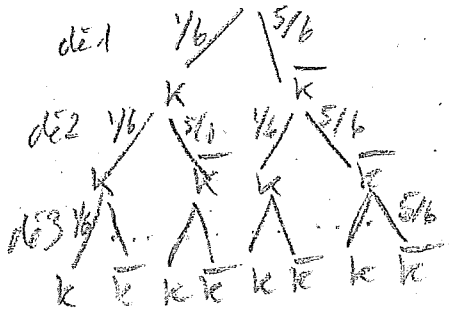 dé 1 1/6 5/6
k k̅
dé 2 1/6 5/6 1/6 5/6
k k̅ k k̅
dé 3 1/6 ... ... 5/6
k k̅ k k̅ k k̅ k k̅